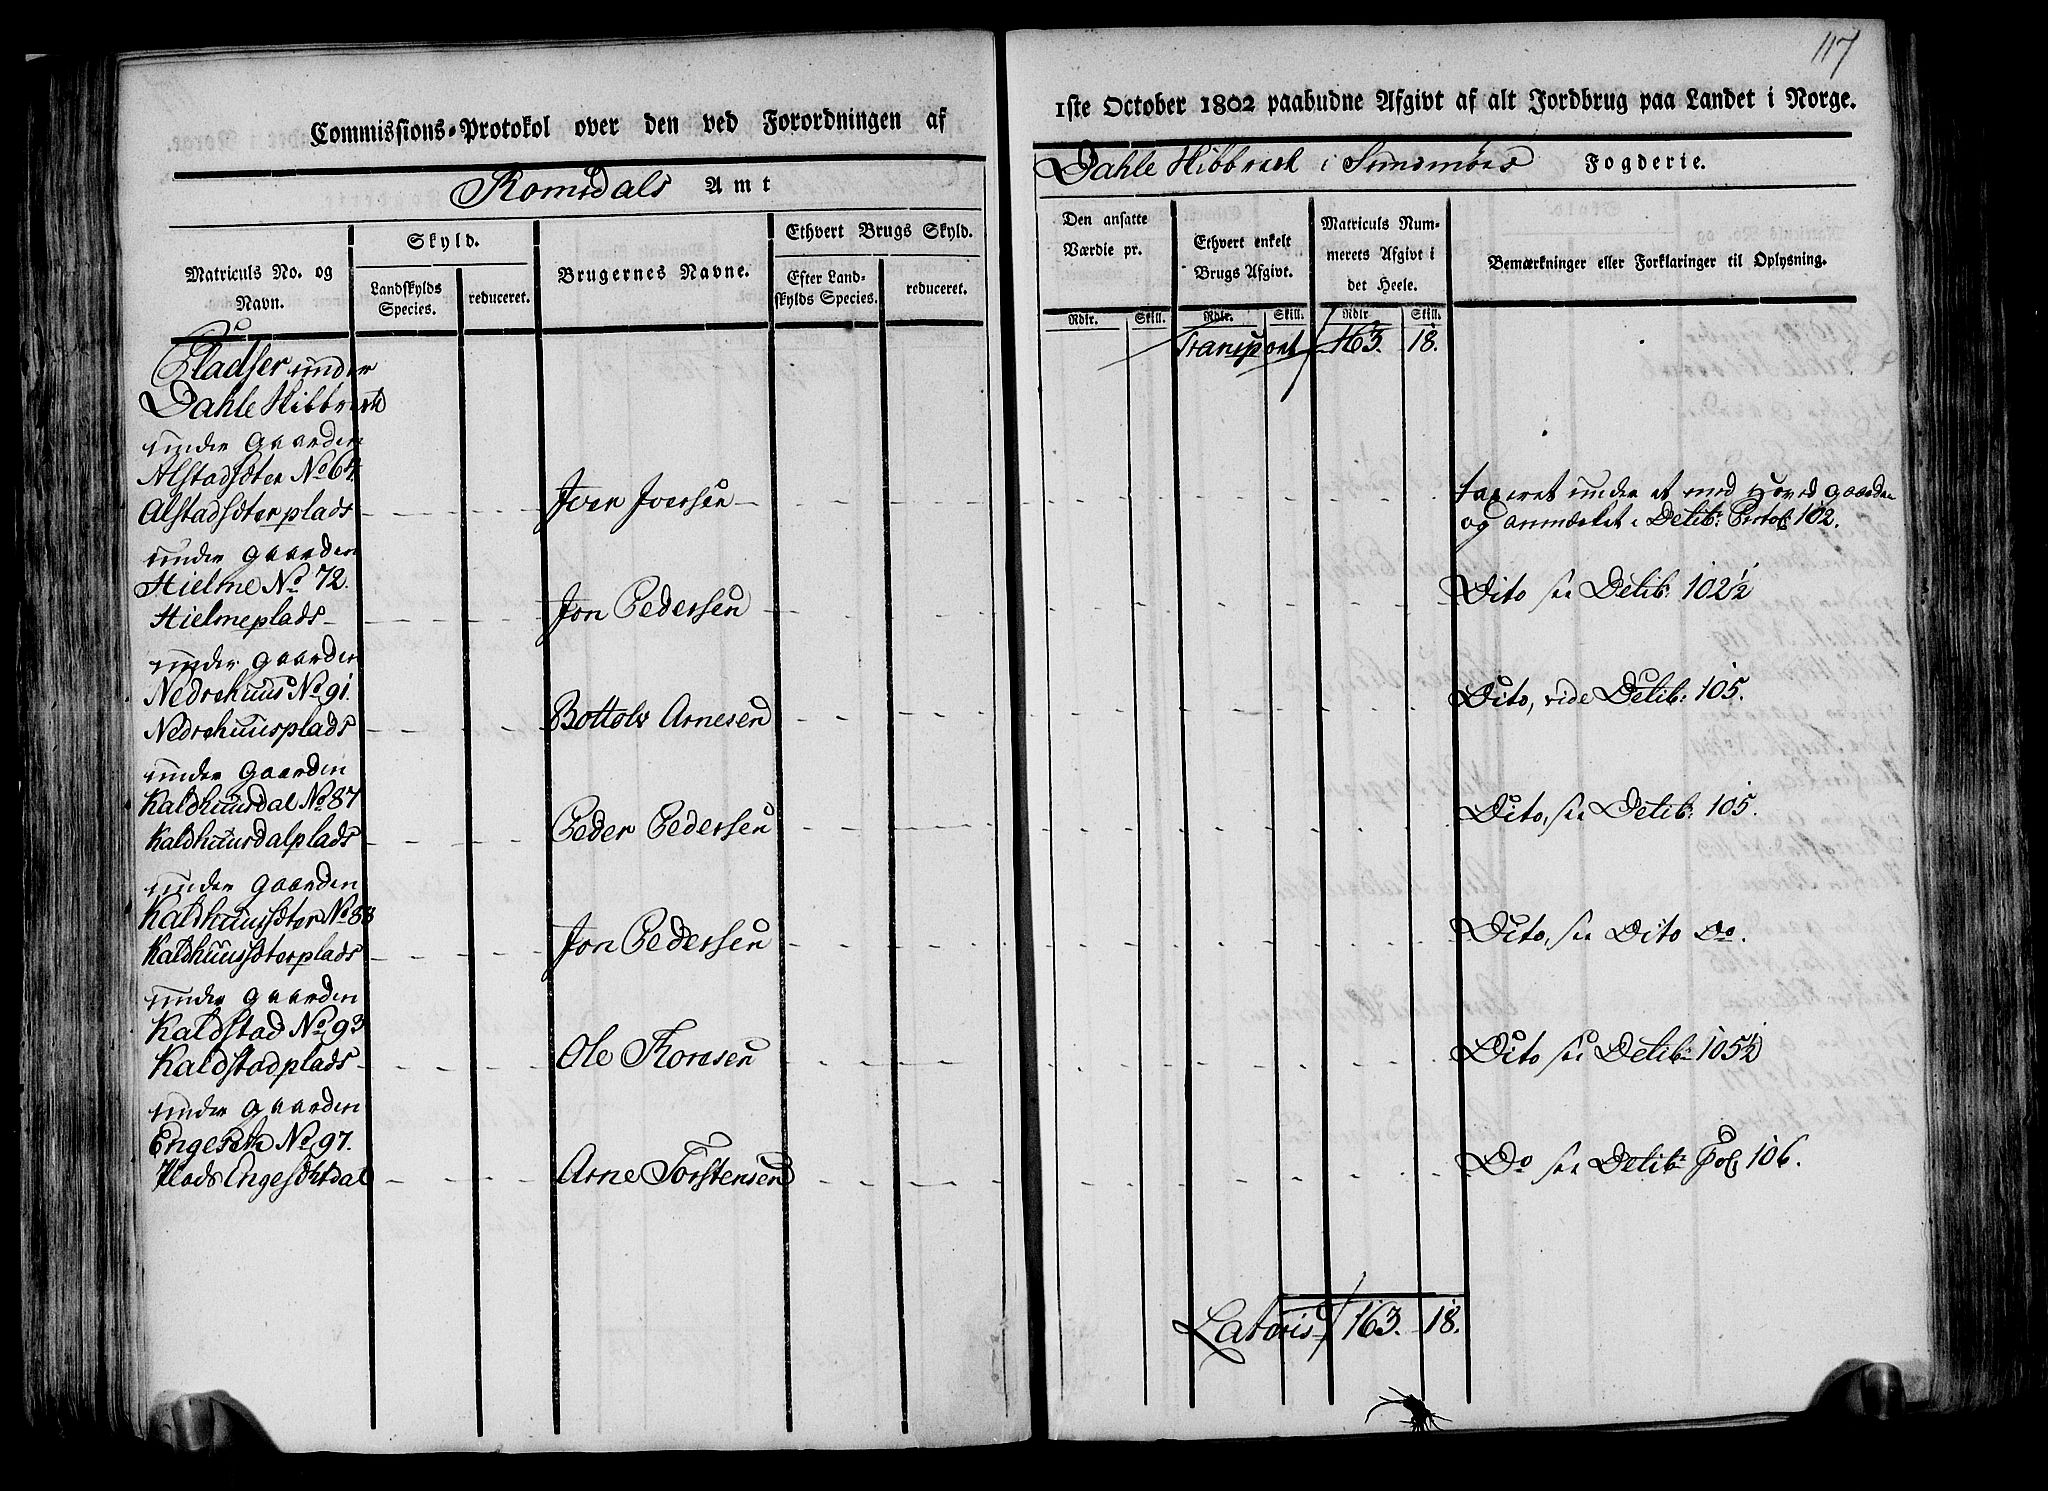 117
Commissions-Protokol over den ved Forordningen af
1ste October 1802 paabudne Afgivt af alt Jordbrug paa Landet i Norge.
Romsdals Amt
Dahle Skibbrede i Sundmørs Fogderie.
Matriculs No. og Navn.
Skyld.
Landskylds Species.
reduceret.
Brugernes Navne.
Ethvert Brugs Skyld.
Efter Landskylds Species.
reduceret.
Den ansatte Værdie pr.
Ethvert enkelt Brugs Afgivt.
Matriculs Nummerets Afgivt i det Heele.
Bemærkninger eller Forklaringer til Oplysning.
Rdlr. Skill. Rdlr. Skill. Rdlr Skill.
Transport 163. 18.
Pladser under
Dahle Skibbrede
under Gaarden
Alstadsæter No 64
Alstadsæterplads Iver Iversen taxeret under et med Hoved Gaarden
og anmærket i Delib: Protol: 102.
under Gaarden
Hielme No 72.
Hielmeplads Jon Pedersen Dito see Delib: 102½
under Gaarden
Nedrehuus No 91.
Nedrehuusplads Bottolv Arnesen Dito, vide Delib: 105.
under Gaarden
Kaldhuusdal No 87
Kaldhuusdalplads Peder Pedersen Dito, see Delib: 105.
under Gaarden
Kaldhuussæter No 88
Kaldhuussæterplads Jon Pedersen Dito, see Dito Do.
under Gaarden
Kaldstad No 93
Kaldstadplads Ole Knudsen Dito see Delib: 105½
under Gaarden
Engeset No 97.
Plads Engesætdal Arne Torstensen Do see Delib: Pol: 106.
Lateris 163. 18.